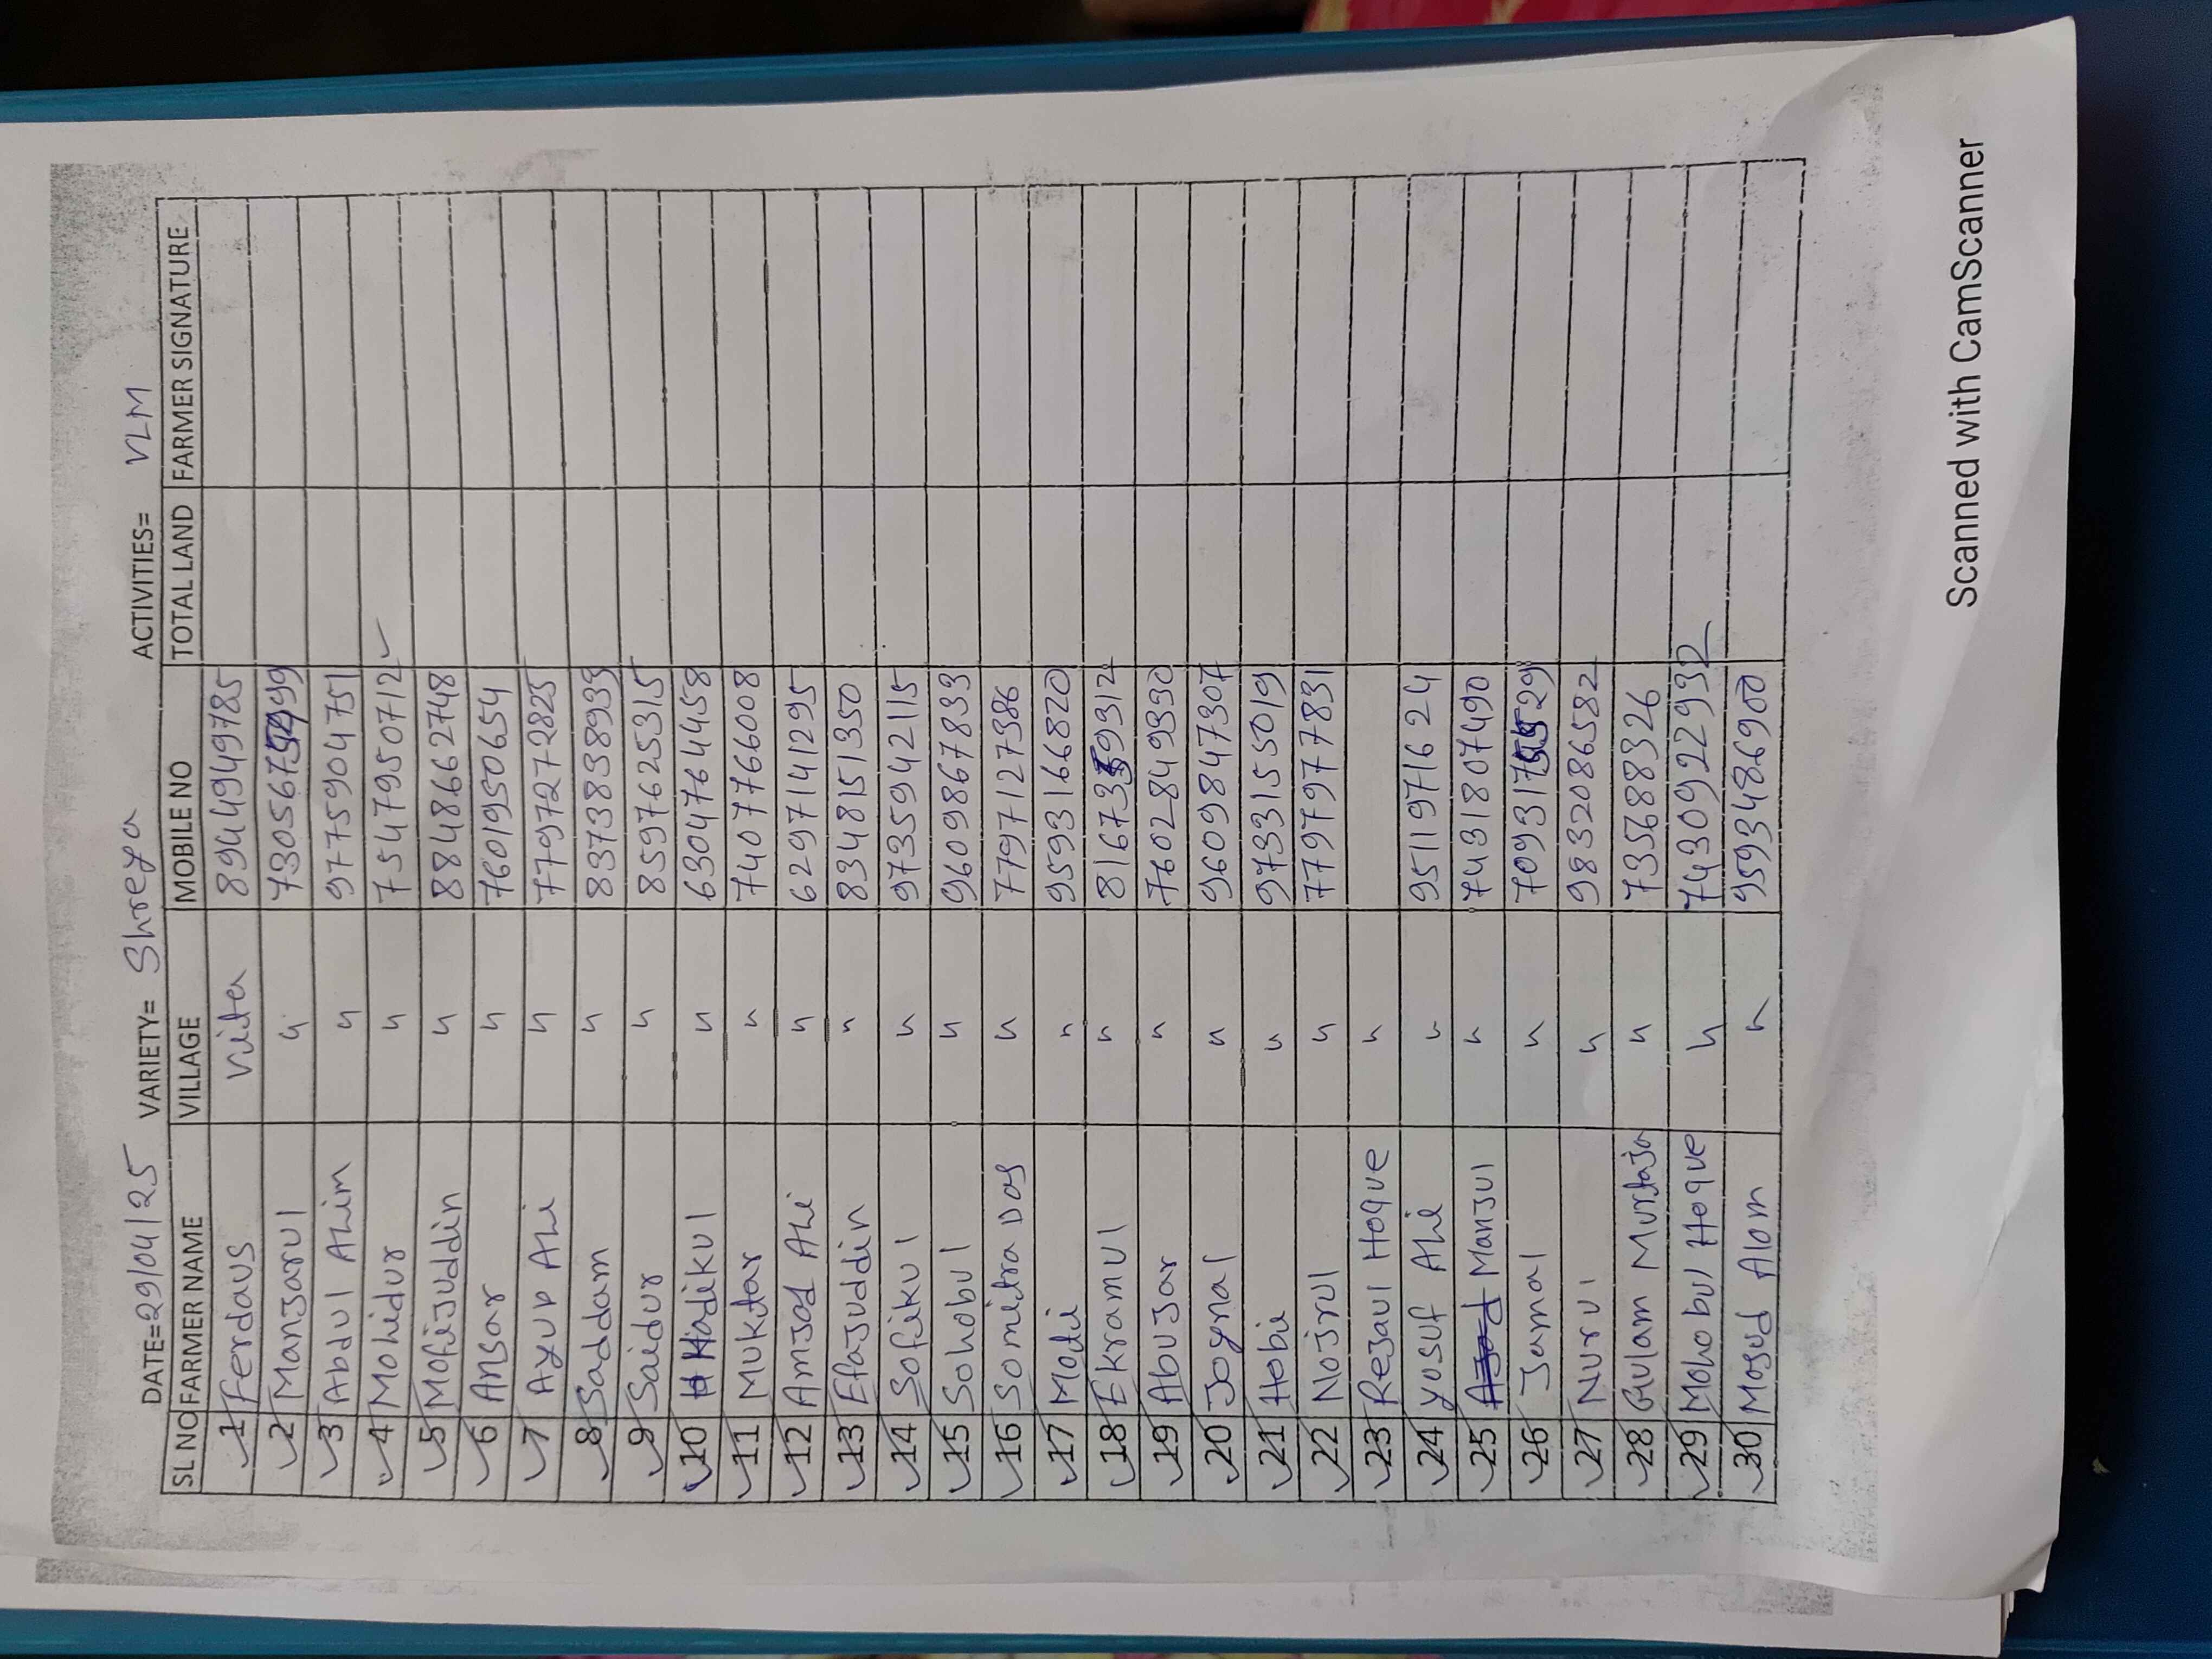 DATE=29/04/25 VARIETY= Shreya ACTIVITIES= VLM
SL NO FARMER NAME VILLAGE MOBILE NO TOTAL LAND FARMER SIGNATURE
1 Ferdaus Vita 8944949785
2 Manjarul "
3 Abdul Alim " 9775904751
4 Mohidur " 7547950712
5 Mofijuddin " 8848662748
6 Ansar " 7601950654
7 Ayup Ali " 7797272825
8 Saddam " 8373838939
9 Saidur " 8597625315
10 Hadikul " 6304764458
11 Muktar " 7407766008
12 Amjad Ali " 6297141295
13 Efajuddin " 8348151350
14 Sofikul " 9735942115
15 Sohobul " 9609867833
16 Somitra Das " 7797127386
17 Modi " 9593166820
18 Ekramul "
19 Abujar " 7602849330
20 Joynal " 9609847307
21 Hobi " 9733155019
22 Nojrul " 7797977831
23 Rejaul Hoque "
24 Yusuf Ali " 9511971624
25 Manjul " 7431807490
26 Jamal "
27 Nurul " 9832086582
28 Gulam Murtaja " 735688326
29 Mohobul Hoque " 7430922932
30 Masud Alom " 9593486900
Scanned with CamScanner